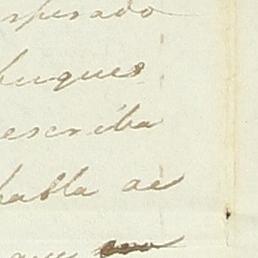 sperado
buques
escriba
habla de
que